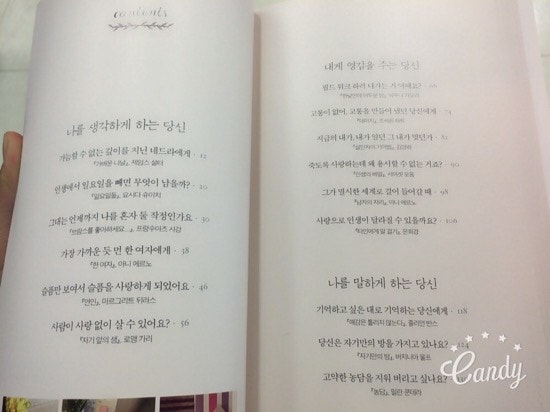 contents
나를 생각하게 하는 당신
가늠할 수 없는 깊이를 지닌 네드라에게 · 12
『가벼운 나날』, 제임스 설터
인생에서 일요일을 빼면 무엇이 남을까? · 20
『일요일들』, 요시다 슈이치
그대는 언제까지 나를 혼자 둘 작정인가요 · 30
『브람스를 좋아하세요...』, 프랑수아즈 사강
가장 가까운 듯 먼 한 여자에게 · 38
『한 여자』, 아니 에르노
슬픔만 보여서 슬픔을 사랑하게 되었어요 · 46
『연인』, 마르그리트 뒤라스
사람이 사랑 없이 살 수 있어요? · 56
『자기 앞의 생』, 로맹 가리
내게 영감을 주는 당신
필드 워크 하러 나가는 거
고통이 없어, 고통을 만들어 냈던 당신에게 · 74
지금의 내가, 내가 알던 그 내가 맞던가 ·
죽도록 사랑하는데 왜 용서할 수 없는 거죠? ·
『인생의 베일』, 서머싯 모옴
그가 열시한 세계로 깊이 들어갈 때 · 98
『남자의 자리』, 아니 에르노
사랑으로 인생이 달라질 수 있을까요? · 106
『타인에게 말 걸기』, 은희경
나를 말하게 하는 당신
기억하고 싶은 대로 기억하는 당신에게 · 118
『예감은 틀리지 않는다』, 줄리언 반스
당신은 자기만의 방을 가지고 있나요? · 124
『자기만의 방』, 버지니아 울프
고약한 농담을 지워 버리고 싶나요?
『농담』, 밀란 쿤데라
Candy